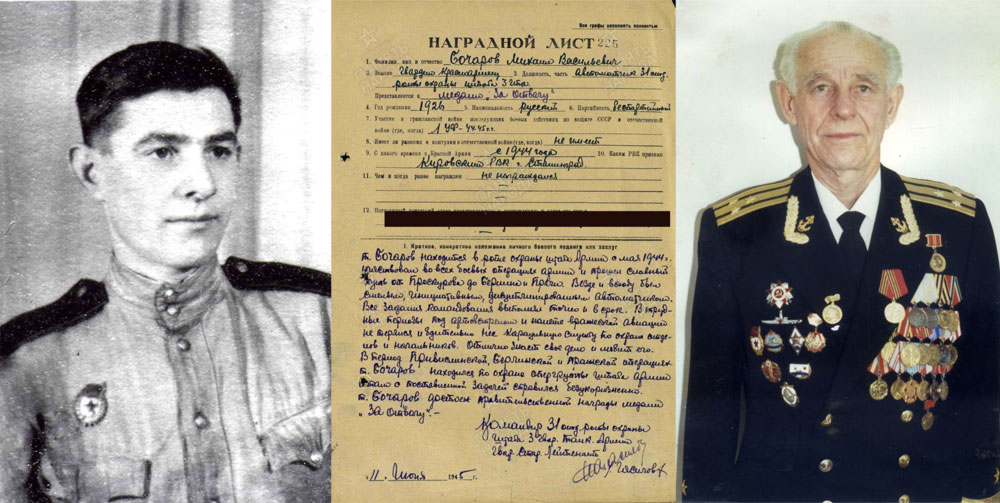 Все графы заполнять полностью
НАГРАДНОЙ ЛИСТ 225
1. Фамилия, имя и отчество Бочаров Михаил Васильевич
2. Звание Гвардии Красноармеец 3. Должность, часть Автоматчик 31 отд.
роты охраны штаба 3 гв.
Представляется к медали „За Отвагу“
4. Год рождения 1926 5. Национальность русский 6. Партийность беспартийный
7. Участие в гражданской войне последующих боевых действиях по защите СССР и отечественной
войне (где, когда) 1 УФ - 44.45 г.г.
8. Имеет ли ранения и контузии в отечественной войне (где, когда) не имеет
9. С какого времени в Красной Армии с 1944 года 10. Каким РВК призван
Кировский РВК г. Сталинград.
11. Чем и когда ранее награжден не награждался
12.
I. Краткое, конкретное изложение личного боевого подвига или заслуг
т. Бочаров находится в роте охраны штаба Армии с мая 1944.
участвовал во всех боевых операциях армии и прошел славный
путь от Проскурова до Берлина и Праги. Везде и всюду был
смелым, инициативным, дисциплинированным Автоматчиком.
Все задания командования выполнял точно и в срок. В труд-
ные периоды под артобстрелом и налете вражеской авиации
не терялся и бдительно нес караульную службу по охране
и начальников. Отлично знает свое дело и любит его.
В период Привислинской, Берлинской и Пражской операциях
т. Бочаров находился по охране опергруппы штаба армии
с поставленной задачей справился безукоризненно.
т. Бочаров достоин правительственной награды медали
„За Отвагу“. -
Командир 31 отд. роты охраны
штаба 3 Гвар. Танк. Армии
Гвар. Стар. Лейтенант
„11“ Июня 1945 г.